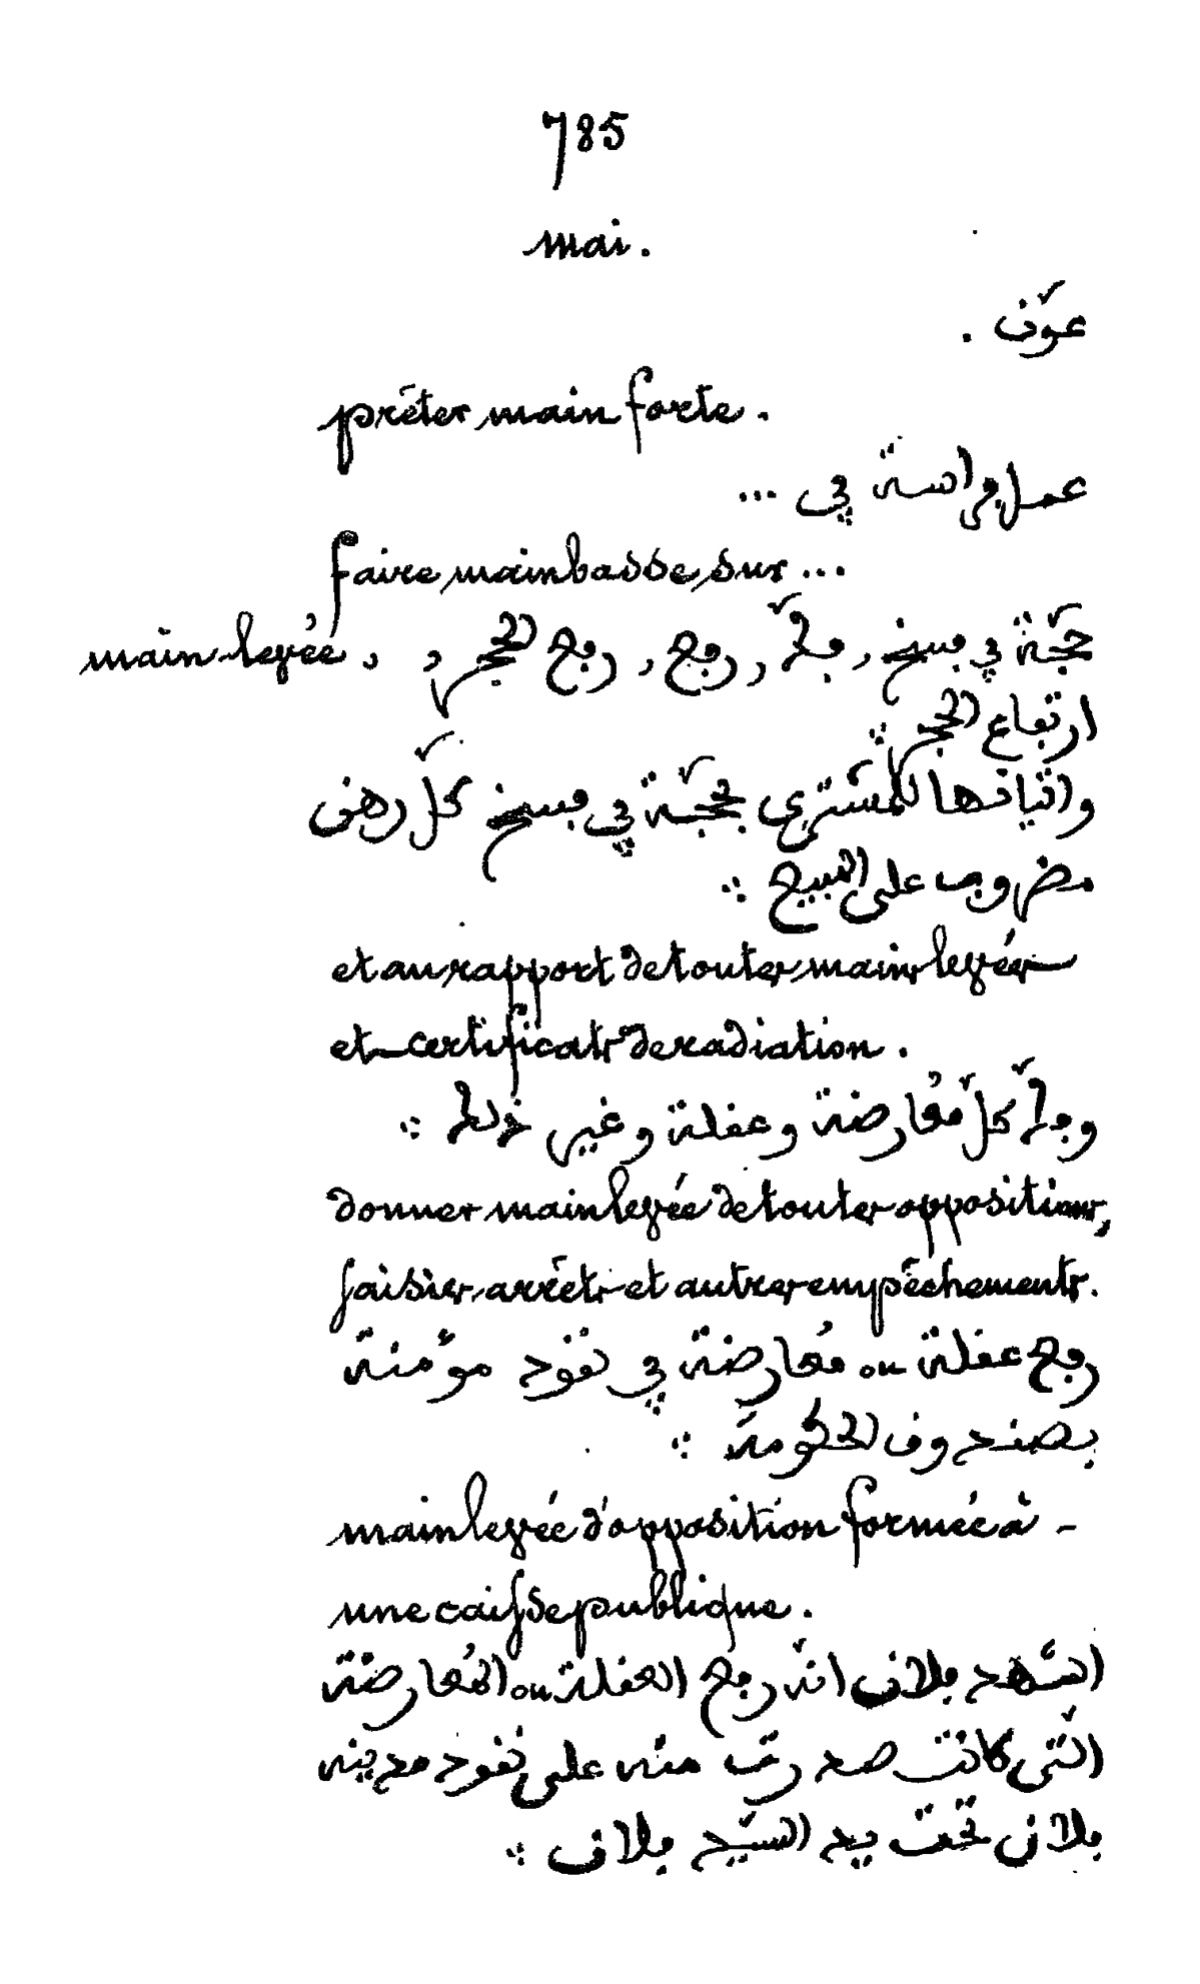 785
mai.
عوّن .
prêter main forte.
عمل فراسة في ...
faire main basse sur ...
main-levée, حجّة في فسخ, فكّ, رفع, رفع الحجر,
ارتفاع الحجر
واتيانها للمشتري بحجّة في فسخ كلّ رهن
مضروب على المبيع
et au rapport de toutes main levées
et certificats de radiation.
وفكّ كلّ مُعارضة وعقلة وغير ذلك
donner main levée de toutes oppositions,
saisies-arrêts et autres empêchements.
رفع عقلة ou مُعارضة في نقود مؤمنة
بصندوق الحكومة
main levée d'opposition formée à -
une caisse publique.
اشهد فلان انّه رفع العقلة ou المُعارضة
الّتي كانت صدرت منه على نقود مدينه
فلان تحت يد السّيد فلان